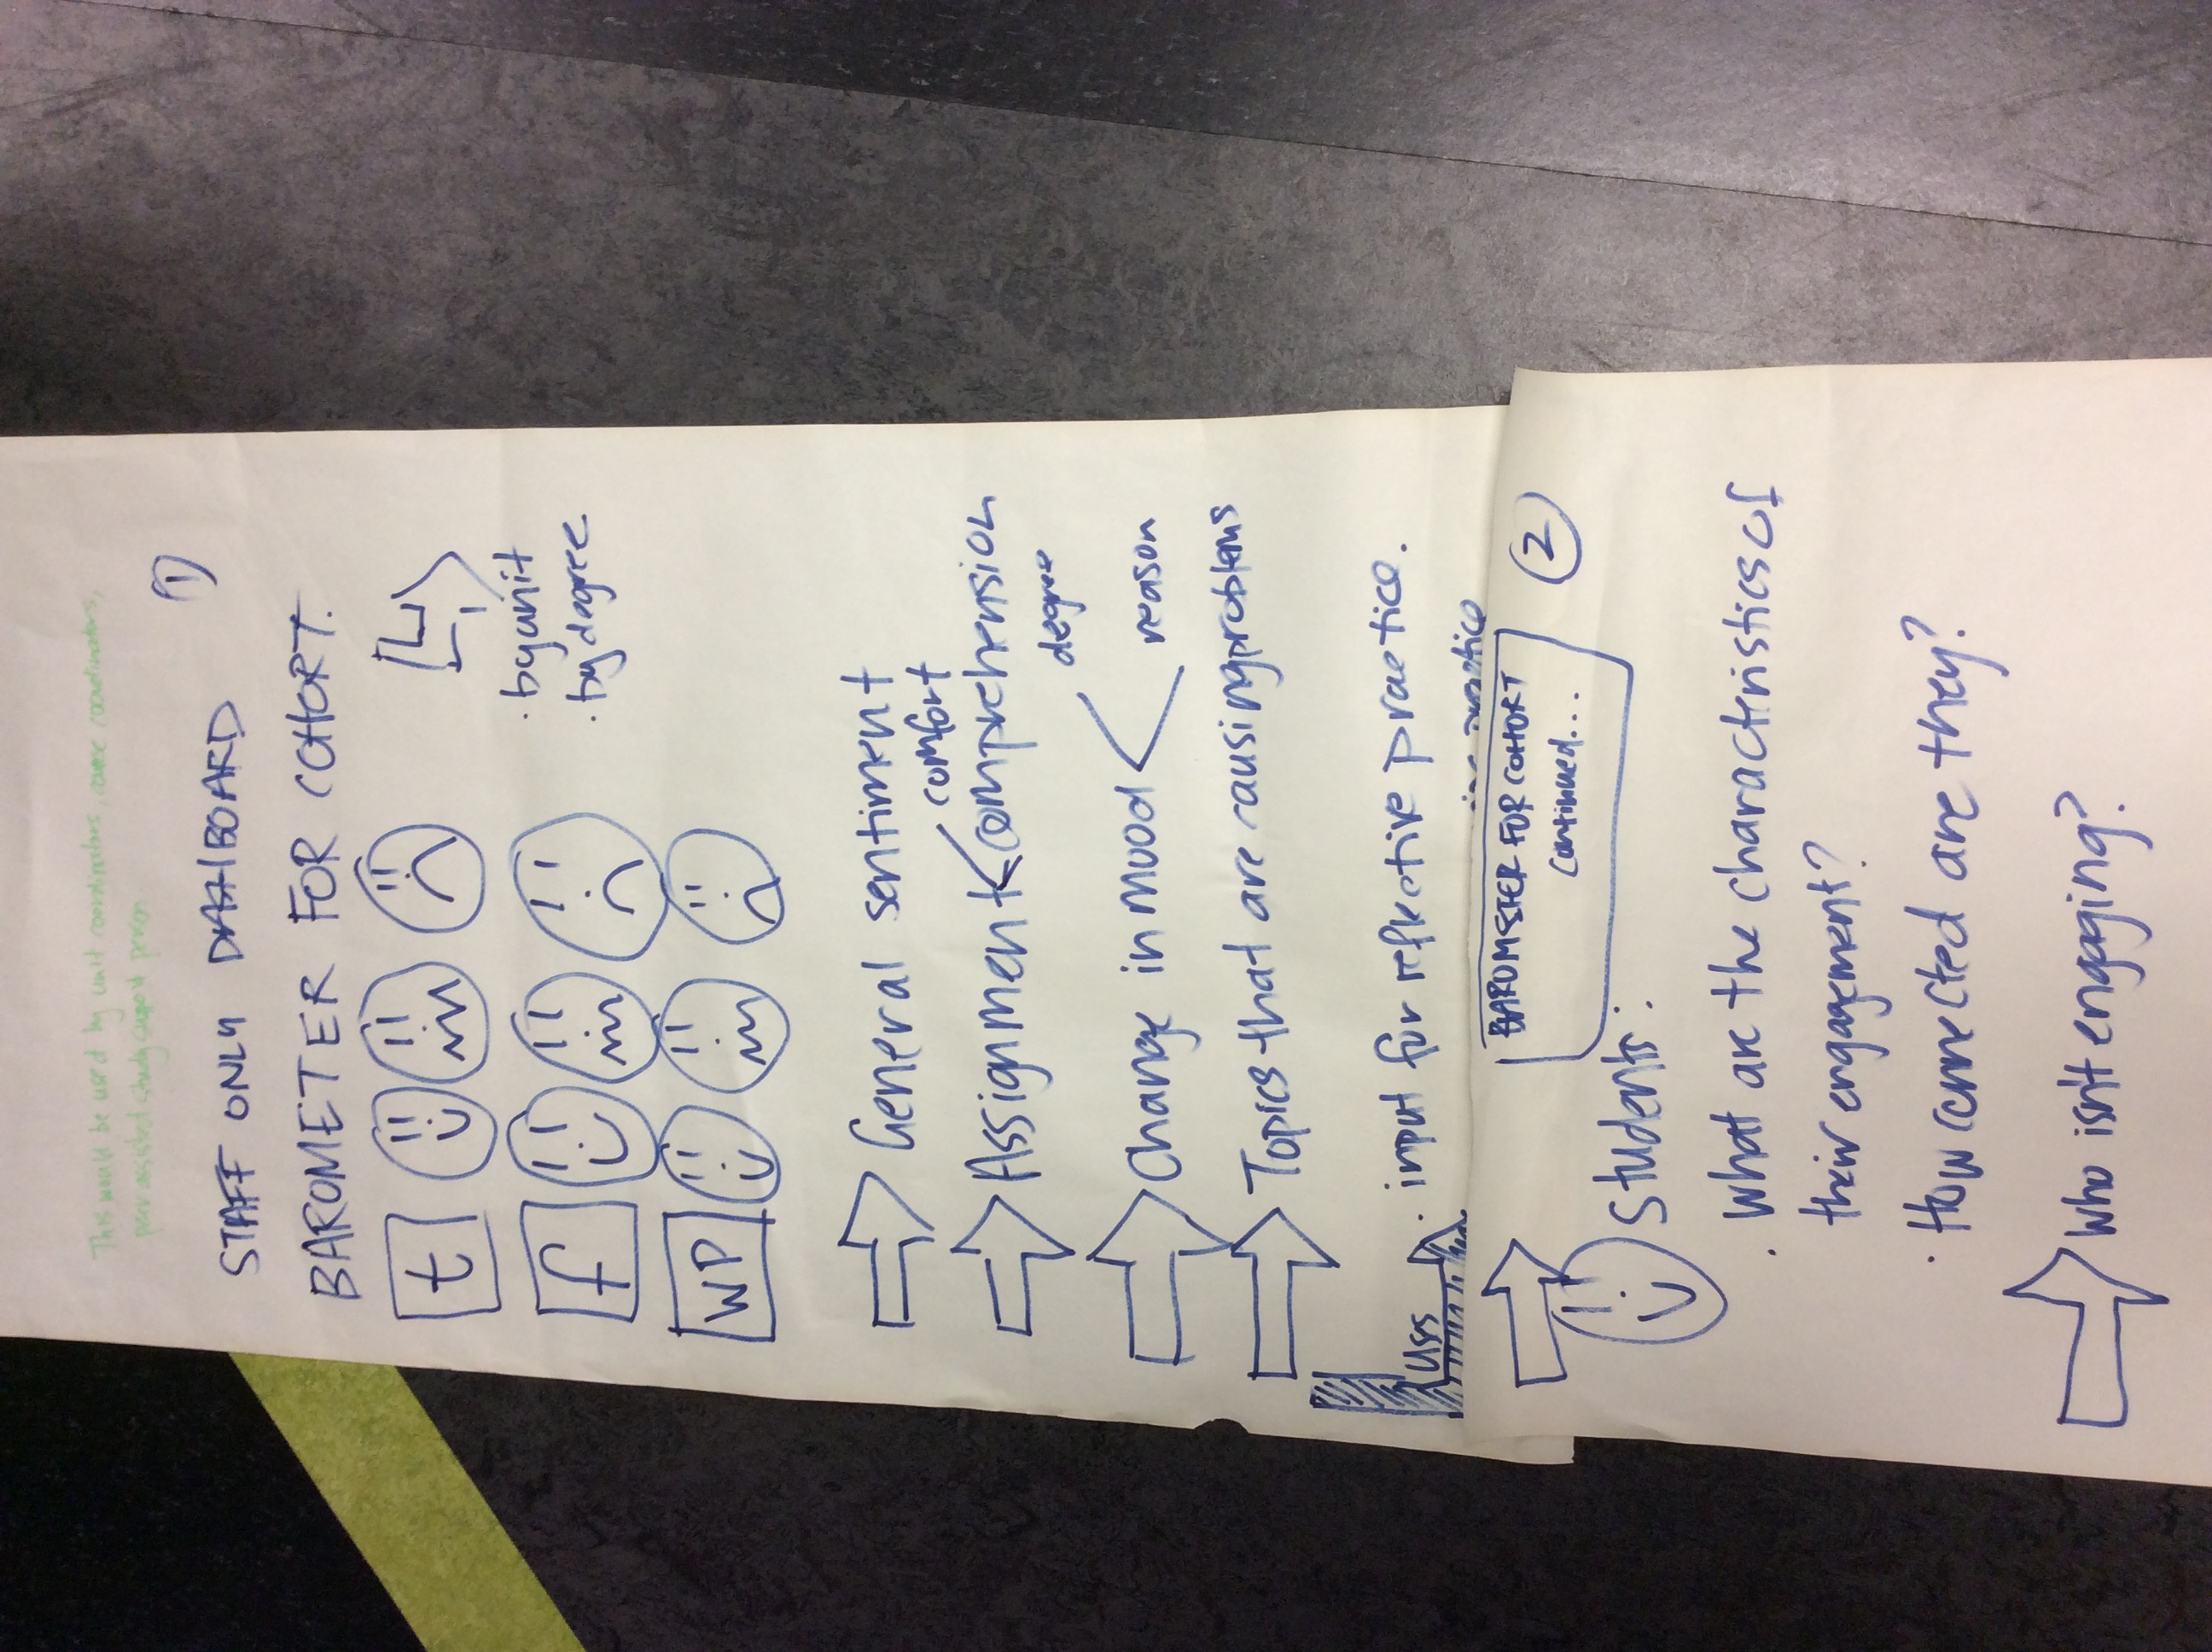 This would be used by unit coordinators, course coordinators,
peer assisted study support person.
1
STAFF ONLY DASHBOARD
BAROMETER FOR COHORT.
t
f
WP
· by unit
· by degree
General sentiment
comfort
Assignment comprehension
degree
Change in mood
reason
Topics that are causing problems
uses
· input for reflective practice.
practice
BAROMETER FOR COHORT
continued...
2
Students:
· What are the characteristics of
their engagement?
· How connected are they?
Who isn't engaging?